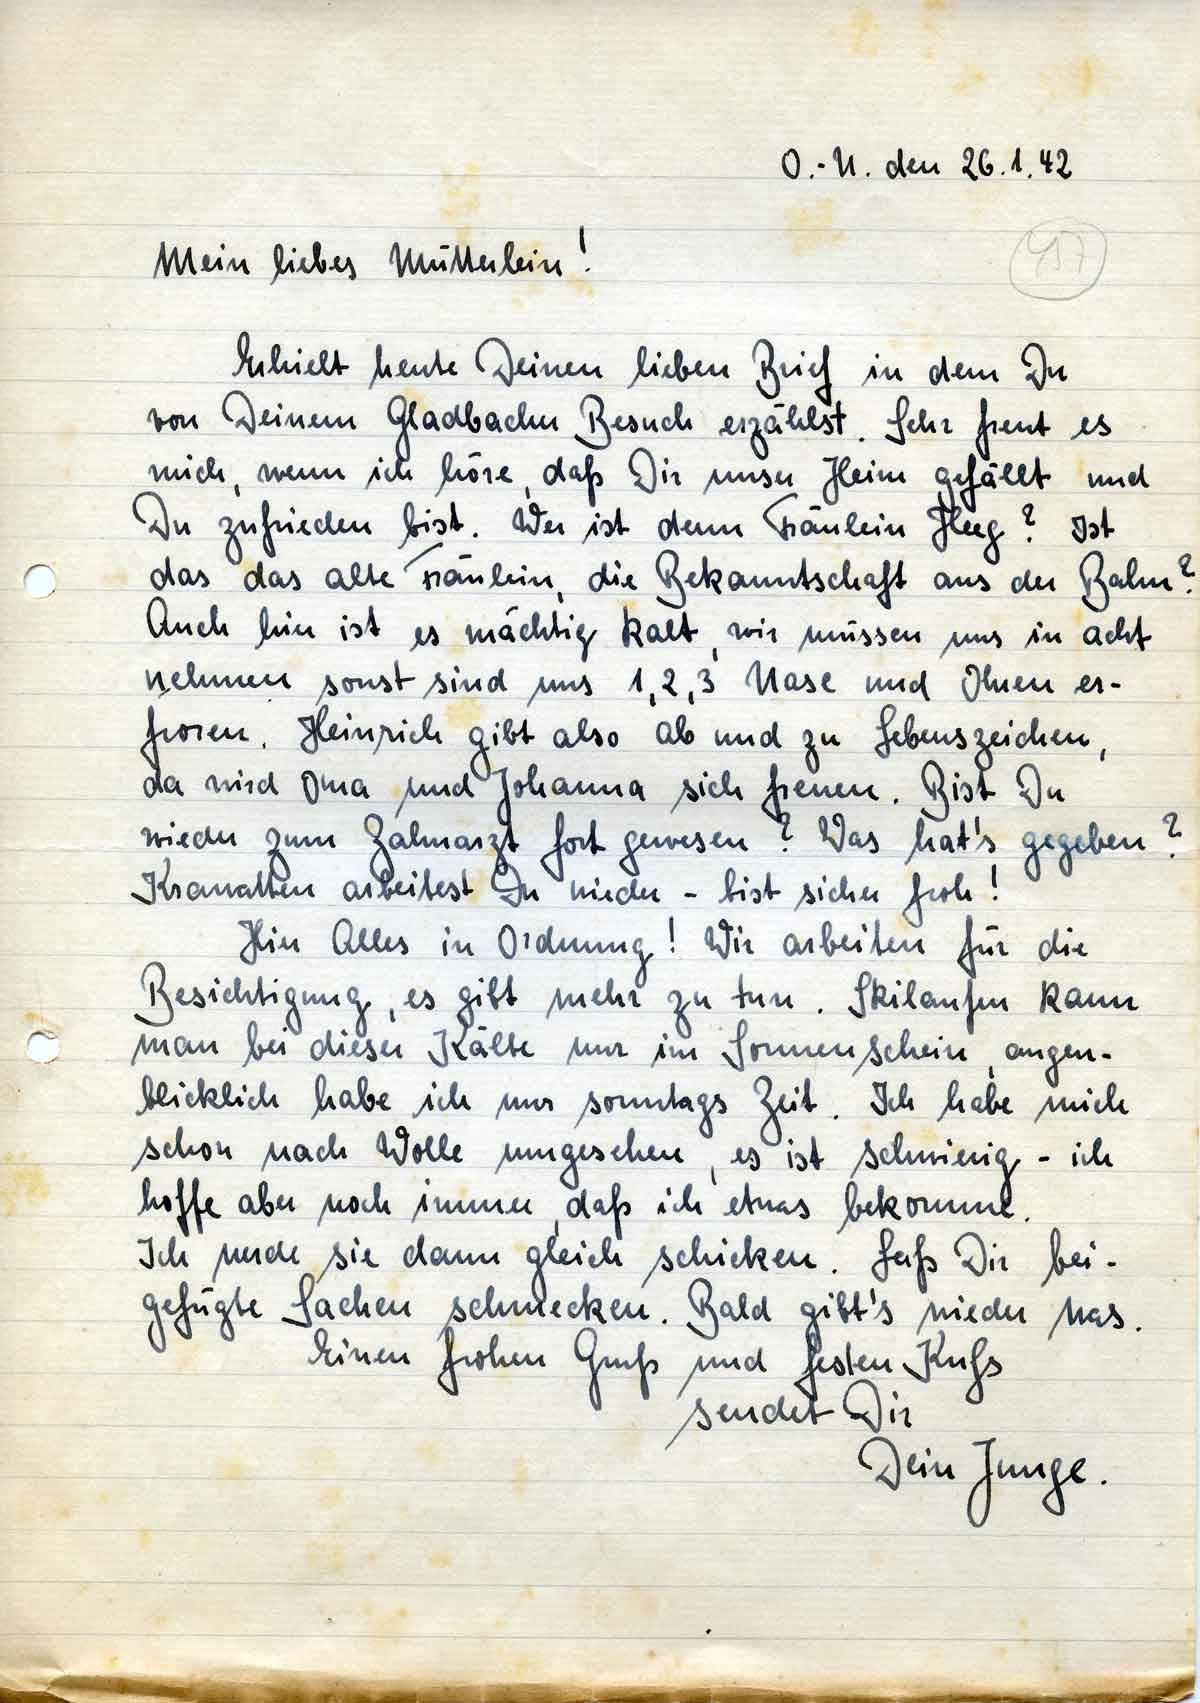 O.-U. den 26.1.42
457
Mein liebes Mütterlein!
Erhielt heute Deinen lieben Brief in dem Du
von Deinem Gladbacher Besuch erzählst. Sehr freut es
mich, wenn ich höre, daß Dir unser Heim gefällt und
Du zufrieden bist. Wer ist denn Fräulein Heeg? Ist
das das alte Fräulein, die Bekanntschaft aus der Bahn?
Auch hier ist es mächtig kalt, wir müssen uns in acht
nehmen sonst sind uns 1,2,3 Nase und Ohren er-
froren. Heinrich gibt also ab und zu Lebenszeichen,
da wird Oma und Johanna sich freuen. Bist Du
wieder zum Zahnarzt fort gewesen? Was hat's gegeben?
Krawatten arbeitest Du wieder - bist sicher froh!
Hier Alles in Ordnung! Wir arbeiten für die
Besichtigung, es gibt mehr zu tun. Skilaufen kann
man bei dieser Kälte nur im Sonnenschein, augen-
blicklich habe ich nur sonntags Zeit. Ich habe mich
schon nach Wolle umgesehen, es ist schwierig - ich
hoffe aber noch immer, daß ich etwas bekomme.
Ich werde sie dann gleich schicken. Laß Dir bei-
gefügte Sachen schmecken. Bald gibt's wieder was.
Einen frohen Gruß und festen Kuß
sendet Dir
Dein Junge.